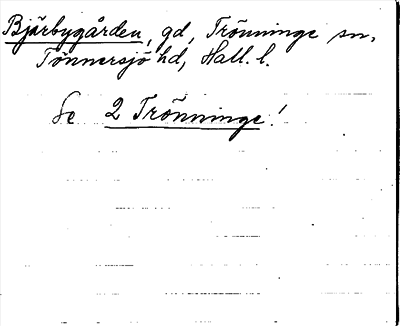 Bjärbygården, gd, Trönninge sn,
Tönnersjö hd, Hall. l.
Se 2 Trönninge!